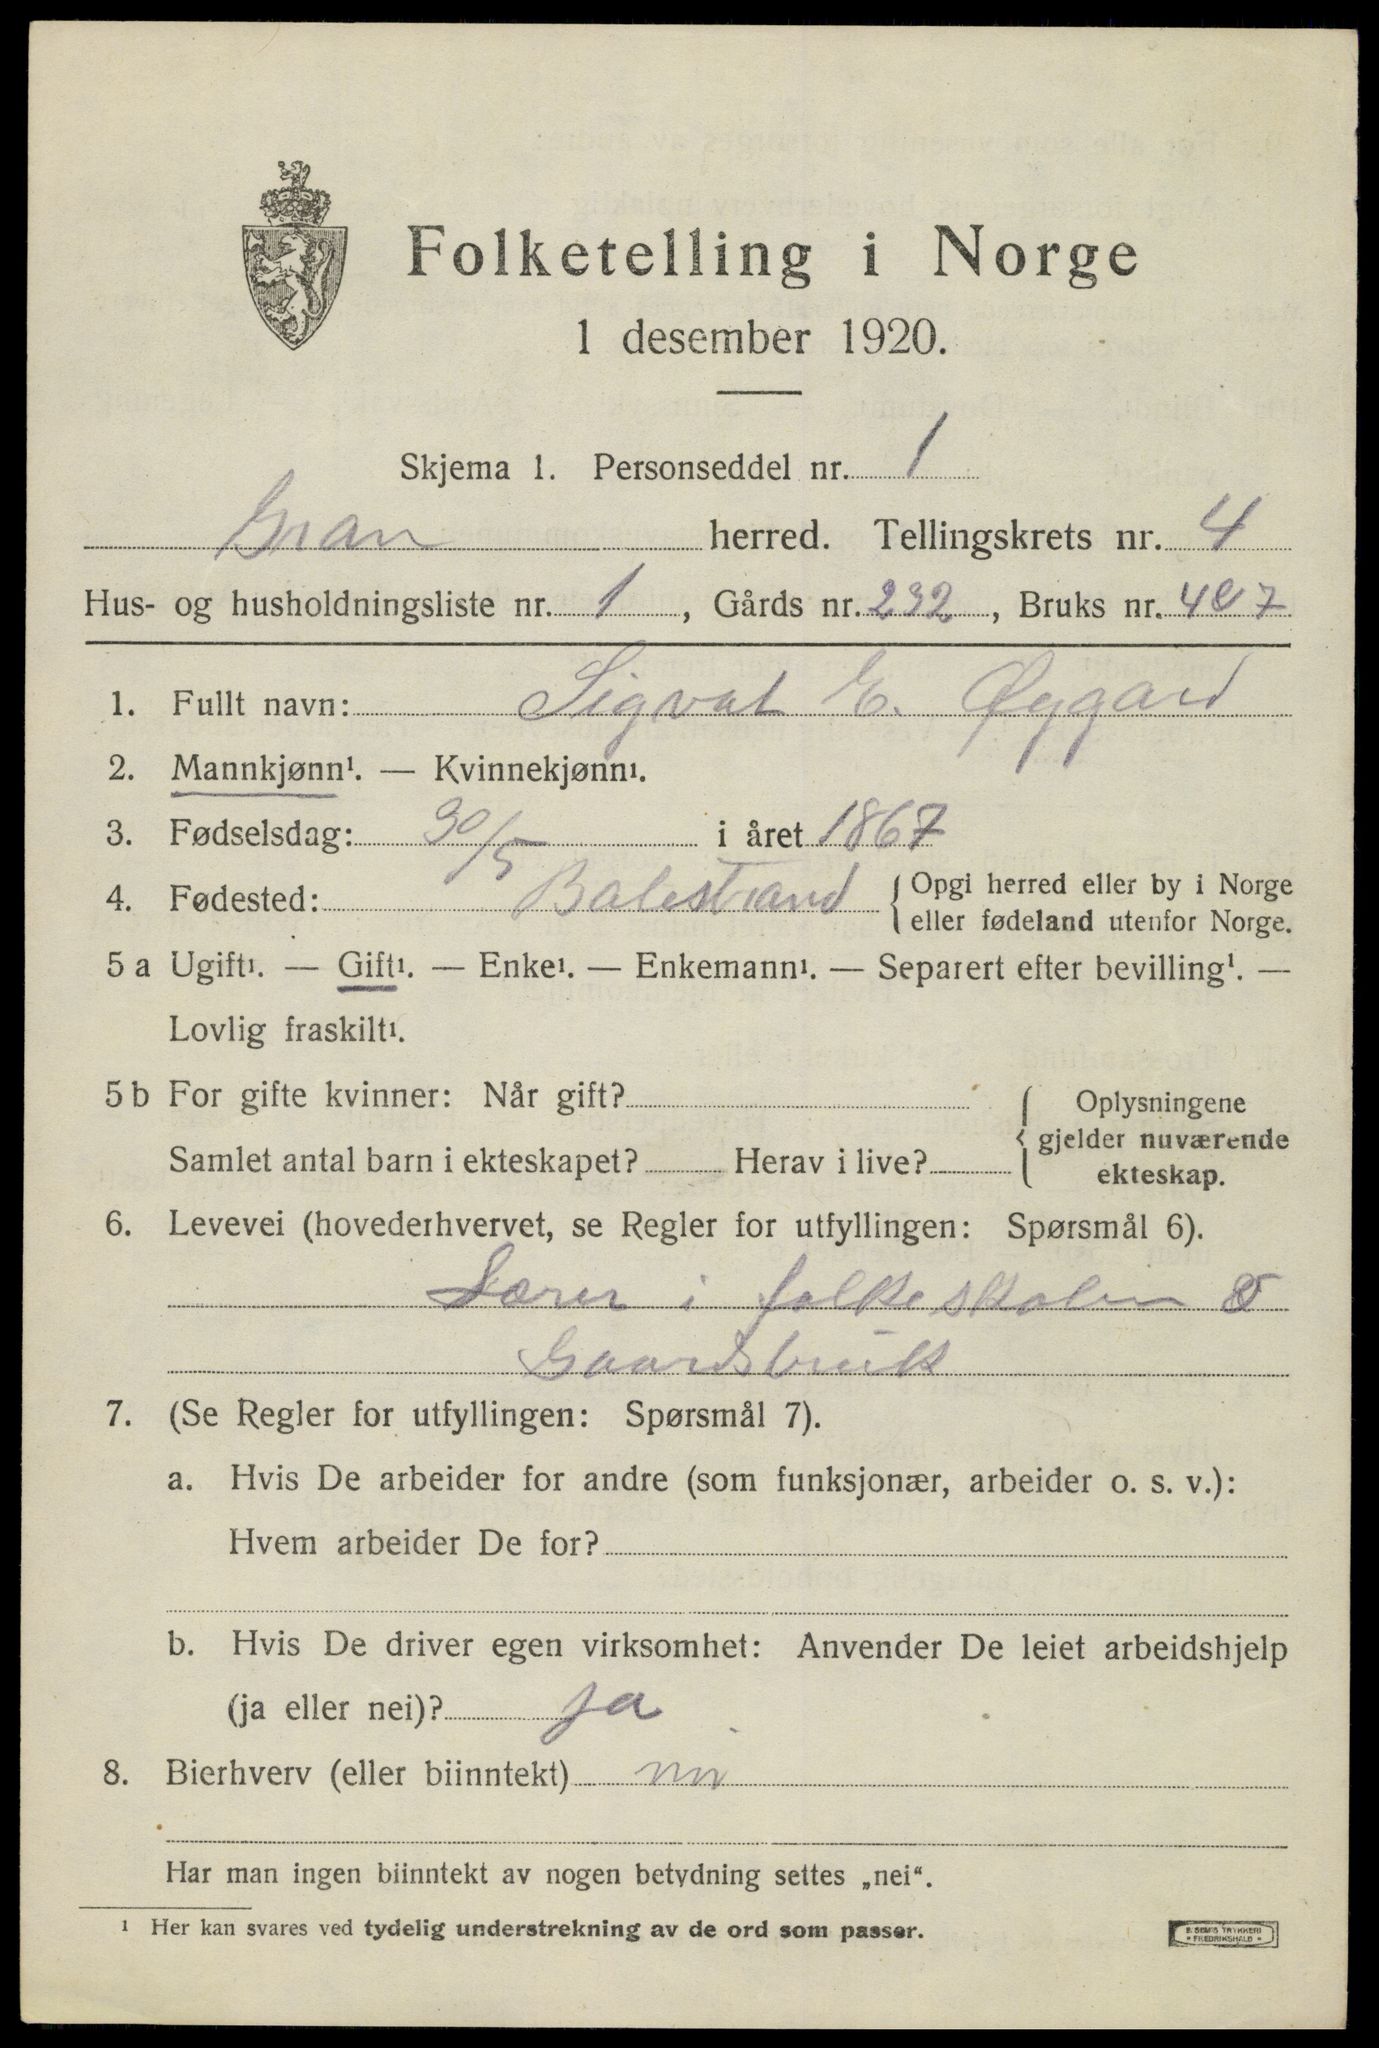 Folketelling i Norge
1 desember 1920.
Skjema 1. Personseddel nr. 1
Gran herred. Tellingskrets nr. 4
Hus- og husholdningsliste nr. 1, Gårds nr. 232, Bruks nr. 4&7
1. Fullt navn: Sigvat E. Øygard
2. Mannkjønn¹. — Kvinnekjønn¹.
3. Fødselsdag: 30/5 i året 1867
4. Fødested: Balestrand { Opgi herred eller by i Norge
eller fødeland utenfor Norge.
5 a Ugift¹. — Gift¹. — Enke¹. — Enkemann¹. — Separert efter bevilling¹. —
Lovlig fraskilt¹.
5 b For gifte kvinner: Når gift?
Samlet antal barn i ekteskapet? Herav i live?
{ Oplysningene
gjelder nuværende
ekteskap.
6. Levevei (hovederhvervet, se Regler for utfyllingen: Spørsmål 6).
Lærer i folkeskolen &
Gaardsbruk
7. (Se Regler for utfyllingen: Spørsmål 7).
a. Hvis De arbeider for andre (som funksjonær, arbeider o. s. v.):
Hvem arbeider De for?
b. Hvis De driver egen virksomhet: Anvender De leiet arbeidshjelp
(ja eller nei)? ja
8. Bierhverv (eller biinntekt) nei
Har man ingen biinntekt av nogen betydning settes „nei“.
¹ Her kan svares ved tydelig understrekning av de ord som passer.
E. SEM'S TRYKKERI
• FREDRIKSHALD •